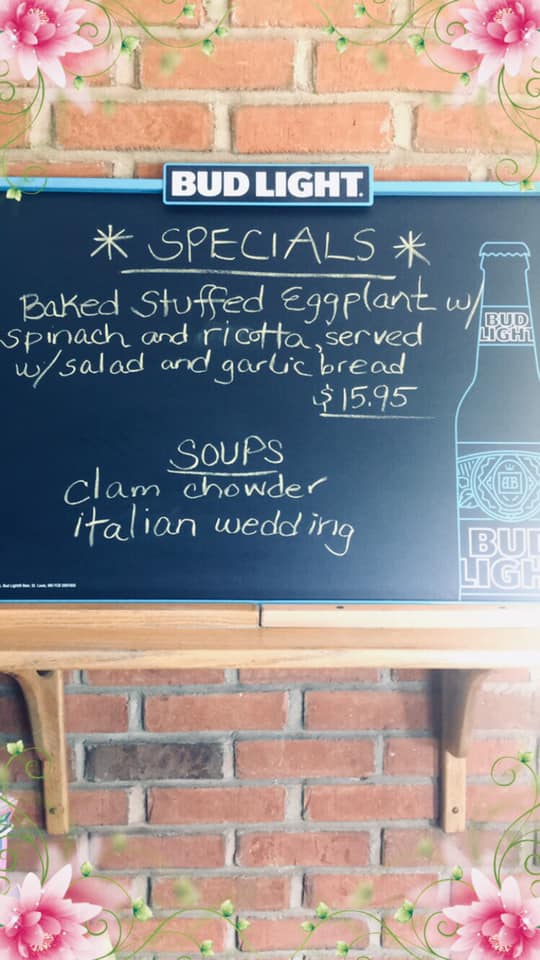 BUD LIGHT
* SPECIALS *
Baked Stuffed Eggplant w/
spinach and ricotta, served
w/salad and garlic bread
$15.95
SOUPS
clam chowder
italian wedding
BUD
LIGHT
BUD
LIGH